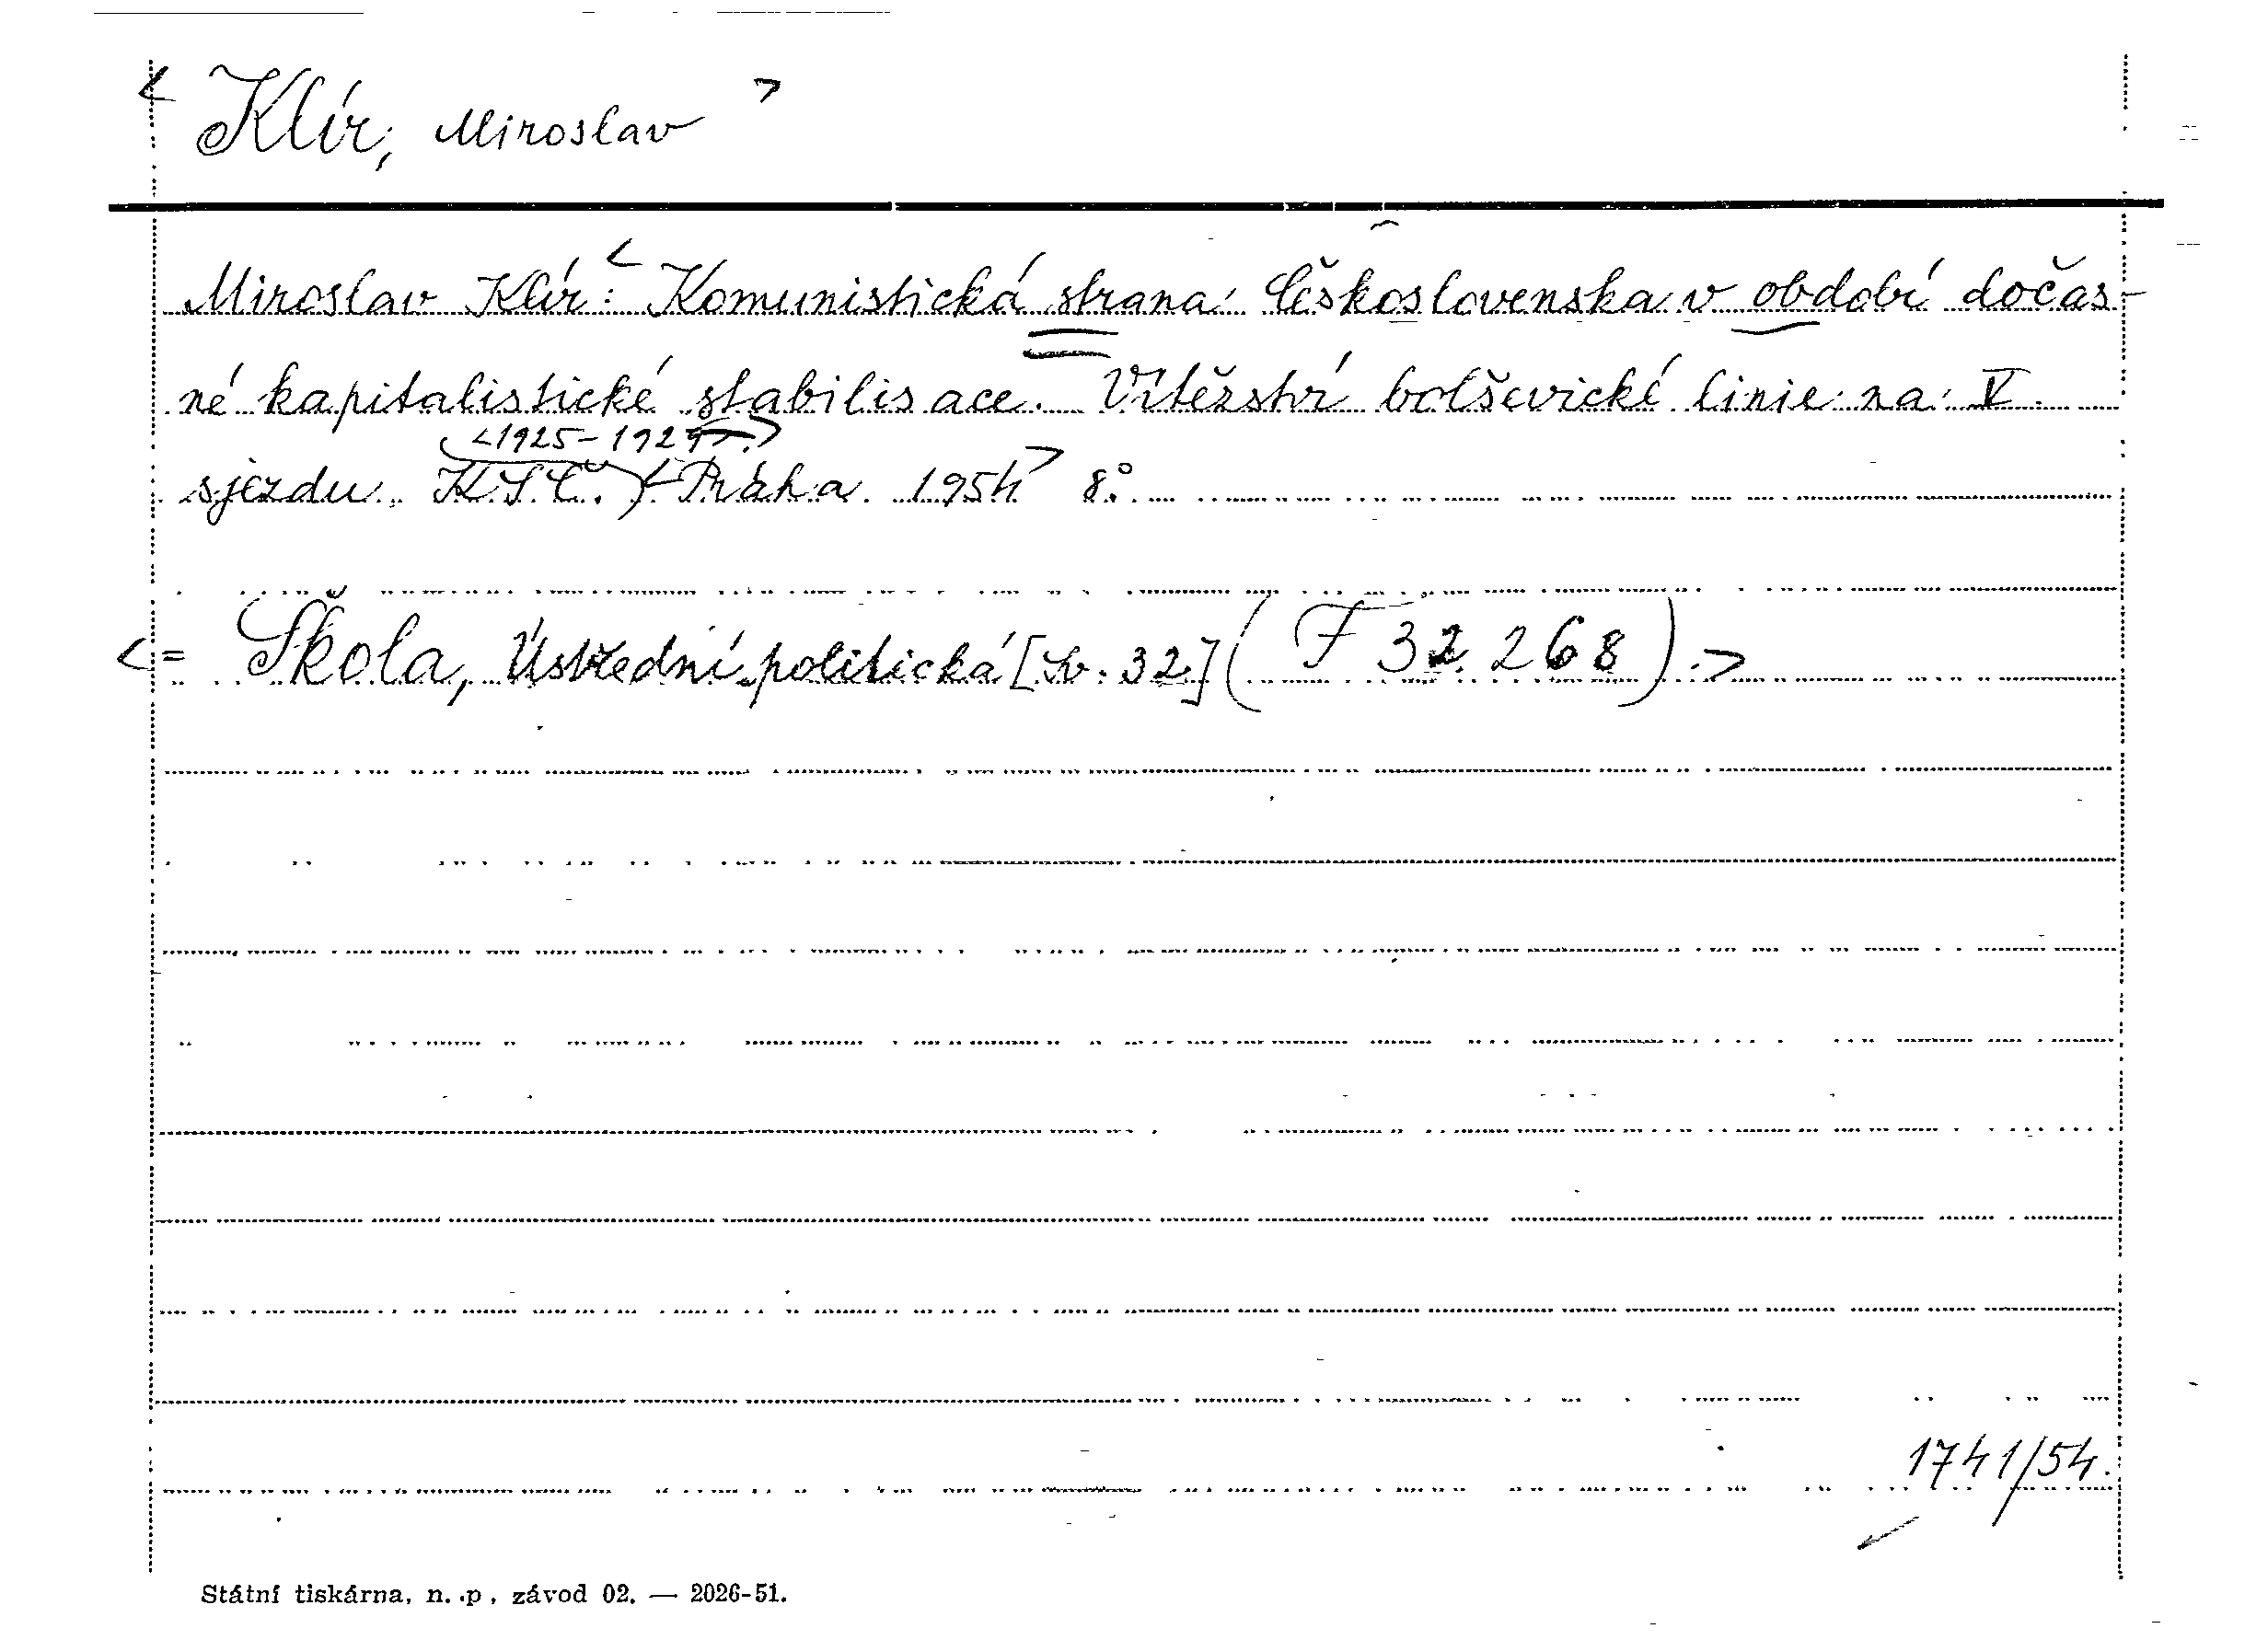 < Klír, Miroslav >
Miroslav Klír: < Komunistická strana Československa v období dočas-
né kapitalistické stabilisace. Vítězství bolševické linie na V.
<1925-1929>
sjezdu K.S.Č. Praha 1954 > 8°.
< = Škola, Ústřední politická [Sv. 32] ( F 32.268 ). >
1741/54.
Státní tiskárna, n. p., závod 02. — 2026-51.